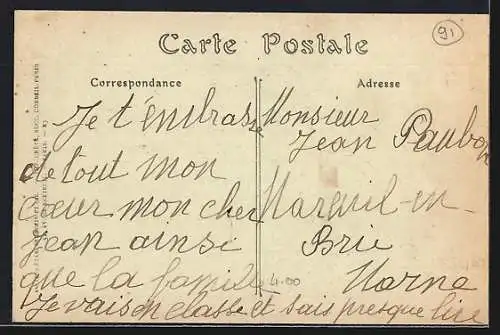 Carte Postale
91
Correspondance
Adresse
Je t'embrasse
de tout mon
cœur mon cher
Jean ainsi
que la famille
Je vais en classe et sais presque lire
Monsieur
Jean Paubon
Mareuil-en-
Brie
Marne
4.00